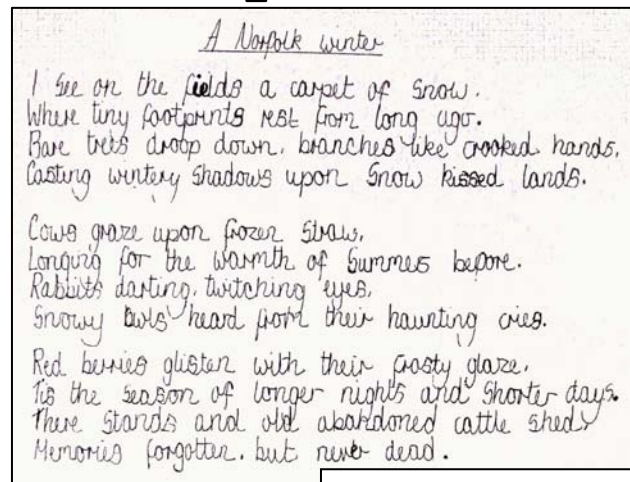 A Norfolk winter
I see on the fields a carpet of snow.
Where tiny footprints rest from long ago.
Bare trees droop down, branches like crooked hands,
Casting wintery shadows upon snow kissed lands.
Cows graze upon frozen straw,
Longing for the warmth of summers before.
Rabbits darting, twitching eyes,
Snowy owls heard from their haunting cries.
Red berries glisten with their frosty glaze,
Tis the season of longer nights and shorter days.
There stands and old abandoned cattle shed,
Memories forgotten, but never dead.